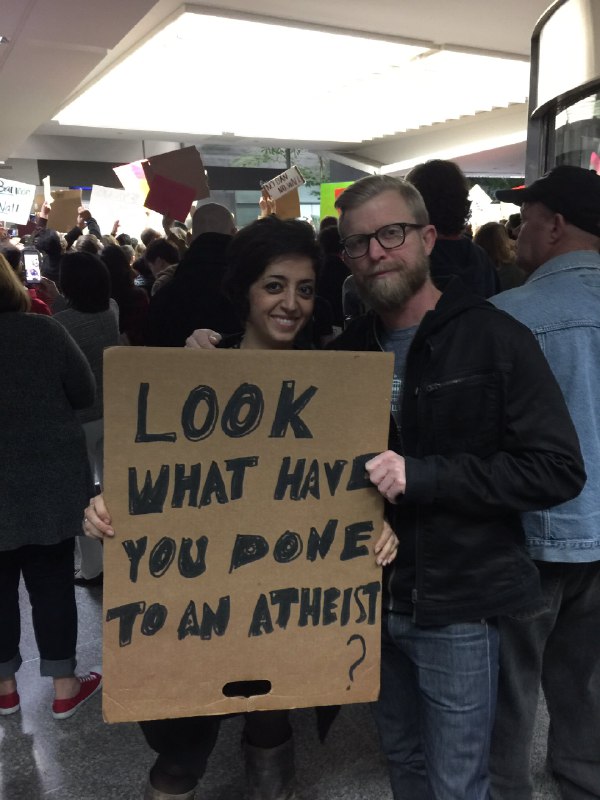 LOOK
WHAT HAVE
YOU DONE
TO AN ATHEIST
?
NO BAN
NO WALL